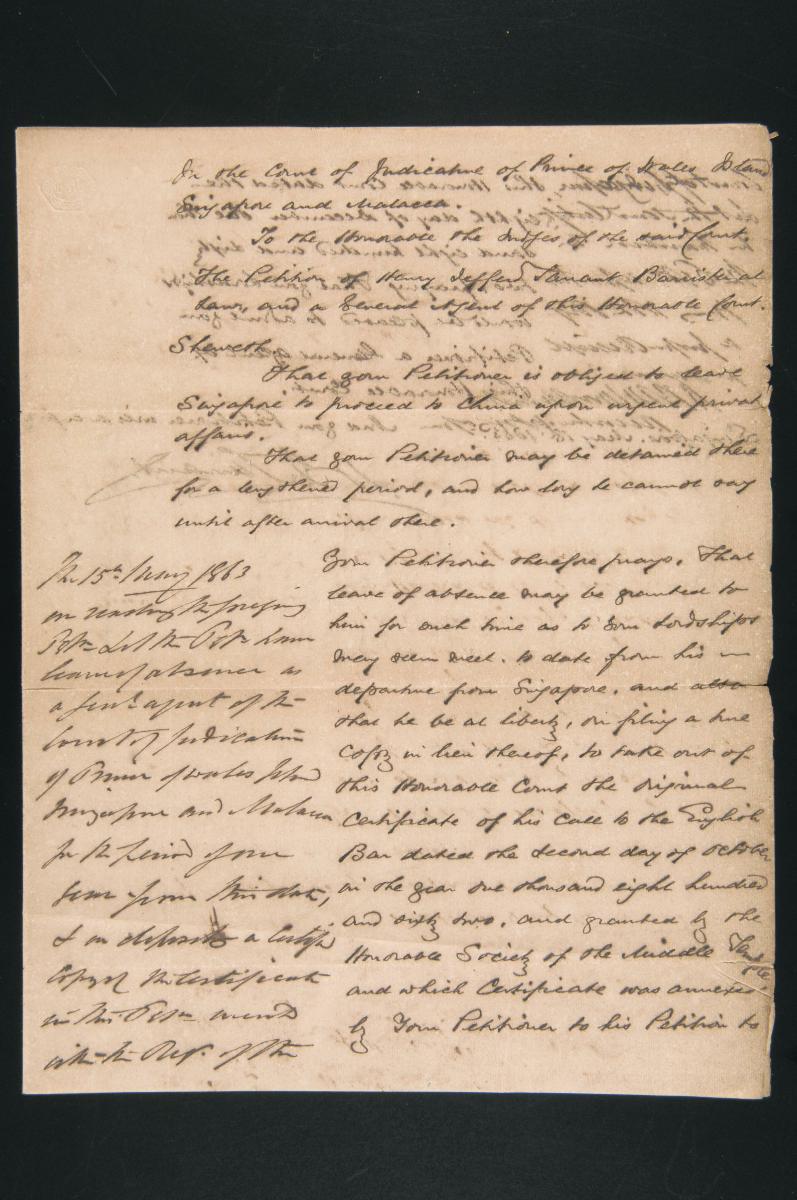 In the Court of Judicature of Prince of Wales Island
Singapore and Malacca.
To the Honorable the Judges of the said Court.
The Petition of Henry Jefferd Tarrant Barrister at
Law, and a General Agent of this Honorable Court.
Sheweth
That your Petitioner is obliged to leave
Singapore to proceed to China upon urgent private
affairs.
That your Petitioner may be detained there
for a lengthened period, and how long he cannot say
until after arrival there.
Your Petitioner therefore prays. That
leave of absence may be granted to
him for such time as to Your Lordships
may seem meet. to date from his
departure from Singapore. and also
that he be at liberty, on filing a true
Copy in lieu thereof, to take out of
this Honorable Court the original
Certificate of his Call to the English
Bar dated the second day of October
in the year one thousand eight hundred
and sixty two. and granted by the
Honorable Society of the Middle Temple
and which Certificate was annexed
by Your Petitioner to his Petition to
The 15th May 1863
on reading the foregoing
Petn Let the Petr have
leave of absence as
a Genl agent of the
Court of Judicature
of Prince of Wales Island
Singapore and Malacca
for the period of one
year from this date,
& on deposit a Certified
Copy of the Certificate
in this Petn
with the Regr. of the